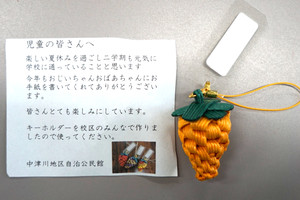 児童の皆さんへ
楽しい夏休みを過ごし二学期も元気に
学校に通っていることと思います
今年もおじいちゃんおばあちゃんにお
手紙を書いてくれてありがとうござい
ます。
皆さんとても楽しみにしています。
キーホルダーを校区のみんなで作りま
したので使ってください。
中津川地区自治公民館